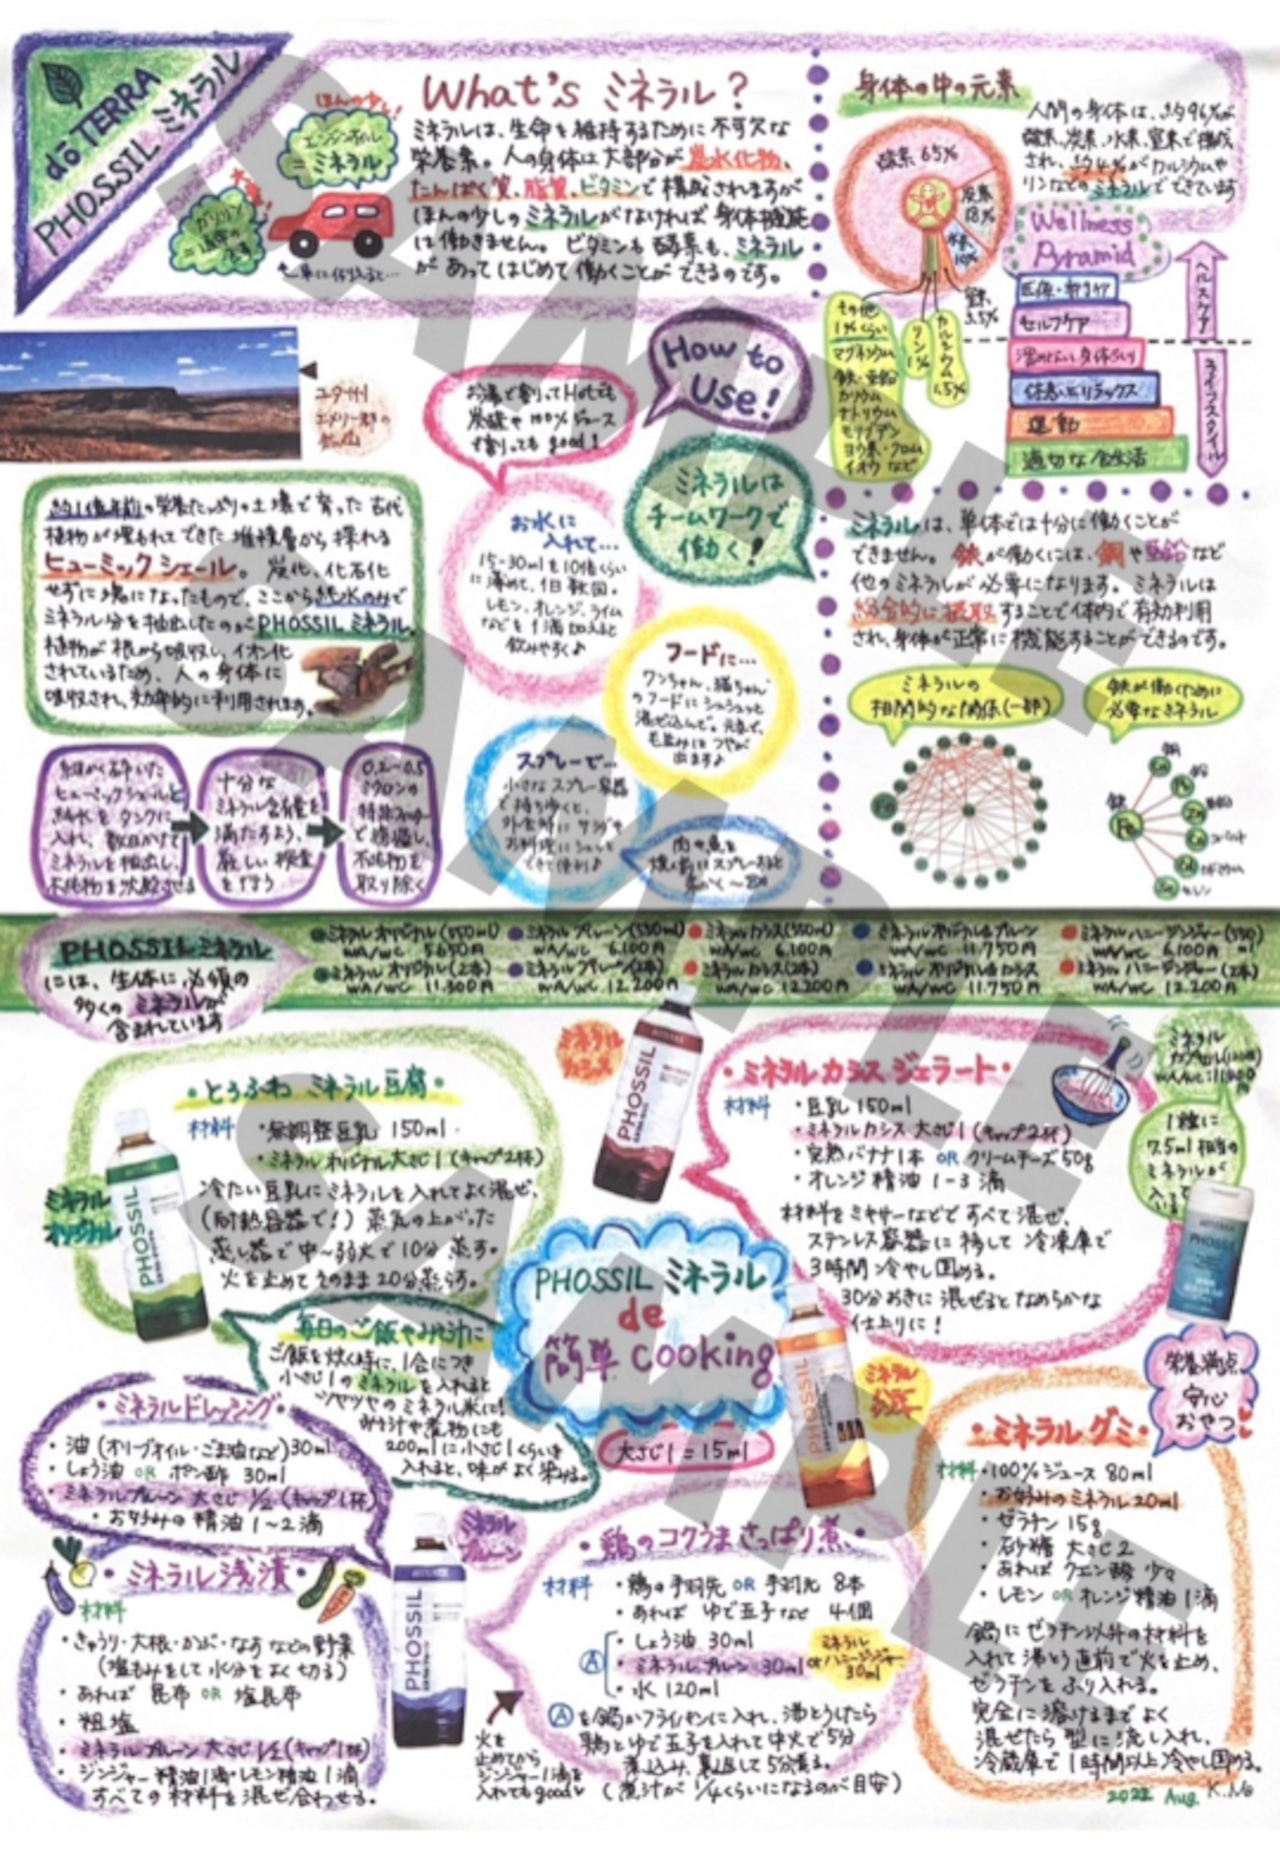 dō TERRA
PHOSSIL ミネラル
ほんの少し!
エンジンオイル
= ミネラル
大量!
ガソリン
車に例えると…
What's ミネラル?
ミネラルは、生命を維持するために不可欠な
栄養素。人の身体は大部分が炭水化物、
たんぱく質、脂質、ビタミンで構成されますが
ほんの少しのミネラルがなければ身体機能
は働きません。ビタミンも酵素も、ミネラル
があってはじめて働くことができるのです。
身体の中の元素
人間の身体は、約96%が
酸素、炭素、水素、窒素で構成
され、約4%がカルシウムや
リンなどのミネラルでできています
酸素 65%
炭素
18%
水素
10%
窒素
3.5%
カルシウム
1.5%
リン
1%
その他
1%くらい
マグネシウム
鉄・亜鉛
カリウム
ナトリウム
モリブデン
ヨウ素・クロム
イオウ など
Wellness
Pyramid
医療・
セルフケア
休息とリラックス
運動
適切な食生活
ヘルスケア
ライフスタイル
ユタ州
エメリー郡の
How to
Use!
お湯で割ってHotでも
炭酸や100%ジュース
で割っても good!
ミネラルは
チームワークで
働く!
お水に
入れて…
15-30mlを10倍くらい
に薄めて、1日数回。
レモン、オレンジ、ライム
などを1滴加えると
飲みやすく♪
フードに…
ワンちゃん、猫ちゃん
のフードにシュシュっと
混ぜ込んで。元気で、
毛並みにつやが
出ます♪
スプレーで…
小さなスプレー容器
で持ち歩くと、
外食時にサラダや
お料理にシュッと
できて便利♪
肉や魚を
焼く前にスプレーすると
約1億年前の栄養たっぷりの土壌で育った古代
植物が埋もれてできた堆積層から採れる
ヒューミックシェール。炭化、化石化
せずに塊になったもので、ここから純水のみで
ミネラル分を抽出したのがPHOSSILミネラル。
植物が根から吸収し、イオン化
されているため、人の身体に
吸収され、効率的に利用されます。
細かく砕いた
ヒューミックシェールと
純水をタンクに
入れ、数日かけて
ミネラルを抽出し、
不純物を沈殿させる
十分な
ミネラル含有量を
満たすよう、
厳しい検査
を行う
0.2~0.5
ミクロンの
特殊フィルター
で濾過し、
不純物を
取り除く
ミネラルは、単体では十分に働くことが
できません。鉄が働くには、銅や亜鉛など
他のミネラルが必要になります。ミネラルは
総合的に摂取することで体内で有効利用
され、身体が正常に機能することができるのです。
ミネラルの
相関的な関係(一部)
鉄が働くために
必要なミネラル
鉄
Fe
銅
コバルト
セレン
PHOSSIL ミネラル
には、生体に必須の
多くのミネラルが
含まれています
ミネラル オリジナル(550ml)
WA/WC 5.650円
ミネラル プルーン(550ml)
WA/WC 6.100円
ミネラル カシス(550ml)
WA/WC 6.100円
ミネラル オリジナル&プルーン
WA/WC 11.750円
ミネラル ハニージンジャー(550ml)
WA/WC 6.100円
ミネラル オリジナル(2本)
WA/WC 11.300円
ミネラル プルーン(2本)
WA/WC 12.200円
ミネラル カシス(2本)
WA/WC 12.200円
ミネラル オリジナル&カシス
WA/WC 11.750円
ミネラル ハニージンジャー(2本)
WA/WC 12.200円
・とうふわ ミネラル豆腐・
材料
・無調整豆乳 150ml
・ミネラルオリジナル大さじ1(キャップ2杯)
冷たい豆乳にミネラルを入れてよく混ぜ、
(耐熱容器で!)蒸気の上がった
蒸し器で中~弱火で10分蒸す。
火を止めてそのまま20分蒸らす。
ミネラル
オリジナル
PHOSSIL
ミネラル
カシス
PHOSSIL
・ミネラルカシス ジェラート・
材料
・豆乳 150ml
・ミネラルカシス 大さじ1(キャップ2杯)
・完熟バナナ1本 OR クリームチーズ50g
・オレンジ精油 1-3滴
材料をミキサーなどですべて混ぜ、
ステンレス容器に移して冷凍庫で
3時間冷やし固める。
30分おきに混ぜるとなめらかな
仕上りに!
ミネラル
カプセル(120粒)
1粒に
7.5ml相当の
ミネラルが
PHOSSIL
毎日のご飯やみそ汁に
ご飯を炊く時に、1合につき
小さじ1のミネラルを入れると
ツヤツヤのミネラル米に!
みそ汁や煮物にも
200mlに小さじ1くらいを
入れると、味がよく染みる。
PHOSSIL ミネラル
de
簡単 cooking
大さじ1 = 15ml
PHOSSIL
ミネラル
栄養満点
安心
おやつ
・ミネラルドレッシング・
・油(オリーブオイル・ごま油など)30ml
・しょう油 OR ポン酢 30ml
・ミネラルプルーン 大さじ1/2(キャップ1杯)
・お好みの精油 1~2滴
・ミネラル浅漬・
材料
・きゅうり・大根・かぶ・なすなどの野菜
(塩もみをして水分をよく切る)
・あれば 昆布 OR 塩昆布
・粗塩
・ミネラルプルーン大さじ1/2(キャップ1杯)
・ジンジャー精油1滴・レモン精油1滴
すべての材料を混ぜ合わせる。
ミネラル
プルーン
PHOSSIL
・鶏のコクうまさっぱり煮・
材料
・鶏の手羽先 OR 手羽元 8本
・あれば ゆで玉子など 4個
Ⓐ
・しょう油 30ml
・ミネラルプルーン 30ml or
ミネラル
ハニージンジャー
30ml
・水 120ml
Ⓐを鍋かフライパンに入れ、沸とうしたら
鶏とゆで玉子を入れて中火で5分
煮込み、裏返して5分煮る。
(煮汁が1/4くらいになるのが目安)
火を
止めてから
ジンジャー1滴を
入れてもgood
・ミネラルグミ・
材料
・100%ジュース 80ml
・お好みのミネラル20ml
・ゼラチン 15g
・砂糖 大さじ2
・あれば クエン酸 少々
・レモン OR オレンジ精油1滴
鍋にゼラチン以外の材料を
入れて沸とう直前で火を止め、
ゼラチンをふり入れる。
完全に溶けるまでよく
混ぜたら型に流し入れ、
冷蔵庫で1時間以上冷やし固める。
2022 Aug.
SAMPLE
SAMPLE
SAMPLE